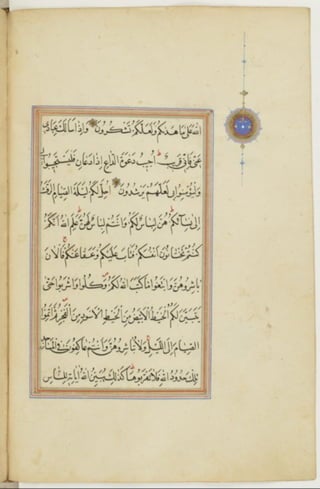 اللّٰهَ عَلٰى مَا هَدٰيكُمْ وَلَعَلَّكُمْ تَشْكُرُونَ وَاِذَا سَاَلَكَ عِبَادِى
عَنِّى فَاِنِّى قَرِيبٌ اُجِيبُ دَعْوَةَ الدَّاعِ اِذَا دَعَانِ فَلْيَسْتَجِيبُوا لِى
وَلْيُؤْمِنُوا بِى لَعَلَّهُمْ يَرْشُدُونَ اُحِلَّ لَكُمْ لَيْلَةَ الصِّيَامِ الرَّفَثُ
اِلٰى نِسَآئِكُمْ هُنَّ لِبَاسٌ لَكُمْ وَاَنْتُمْ لِبَاسٌ لَهُنَّ عَلِمَ اللّٰهُ اَنَّكُمْ
كُنْتُمْ تَخْتَانُونَ اَنْفُسَكُمْ فَتَابَ عَلَيْكُمْ وَعَفَا عَنْكُمْ فَالْاٰنَ
بَاشِرُوهُنَّ وَابْتَغُوا مَا كَتَبَ اللّٰهُ لَكُمْ وَكُلُوا وَاشْرَبُوا حَتّٰى
يَتَبَيَّنَ لَكُمُ الْخَيْطُ الْاَبْيَضُ مِنَ الْخَيْطِ الْاَسْوَدِ مِنَ الْفَجْرِ ثُمَّ اَتِمُّوا
الصِّيَامَ اِلَى اللَّيْلِ وَلَا تُبَاشِرُوهُنَّ وَاَنْتُمْ عَاكِفُونَ فِى الْمَسَاجِدِ
تِلْكَ حُدُودُ اللّٰهِ فَلَا تَقْرَبُوهَا كَذٰلِكَ يُبَيِّنُ اللّٰهُ اٰيَاتِهِ لِلنَّاسِ